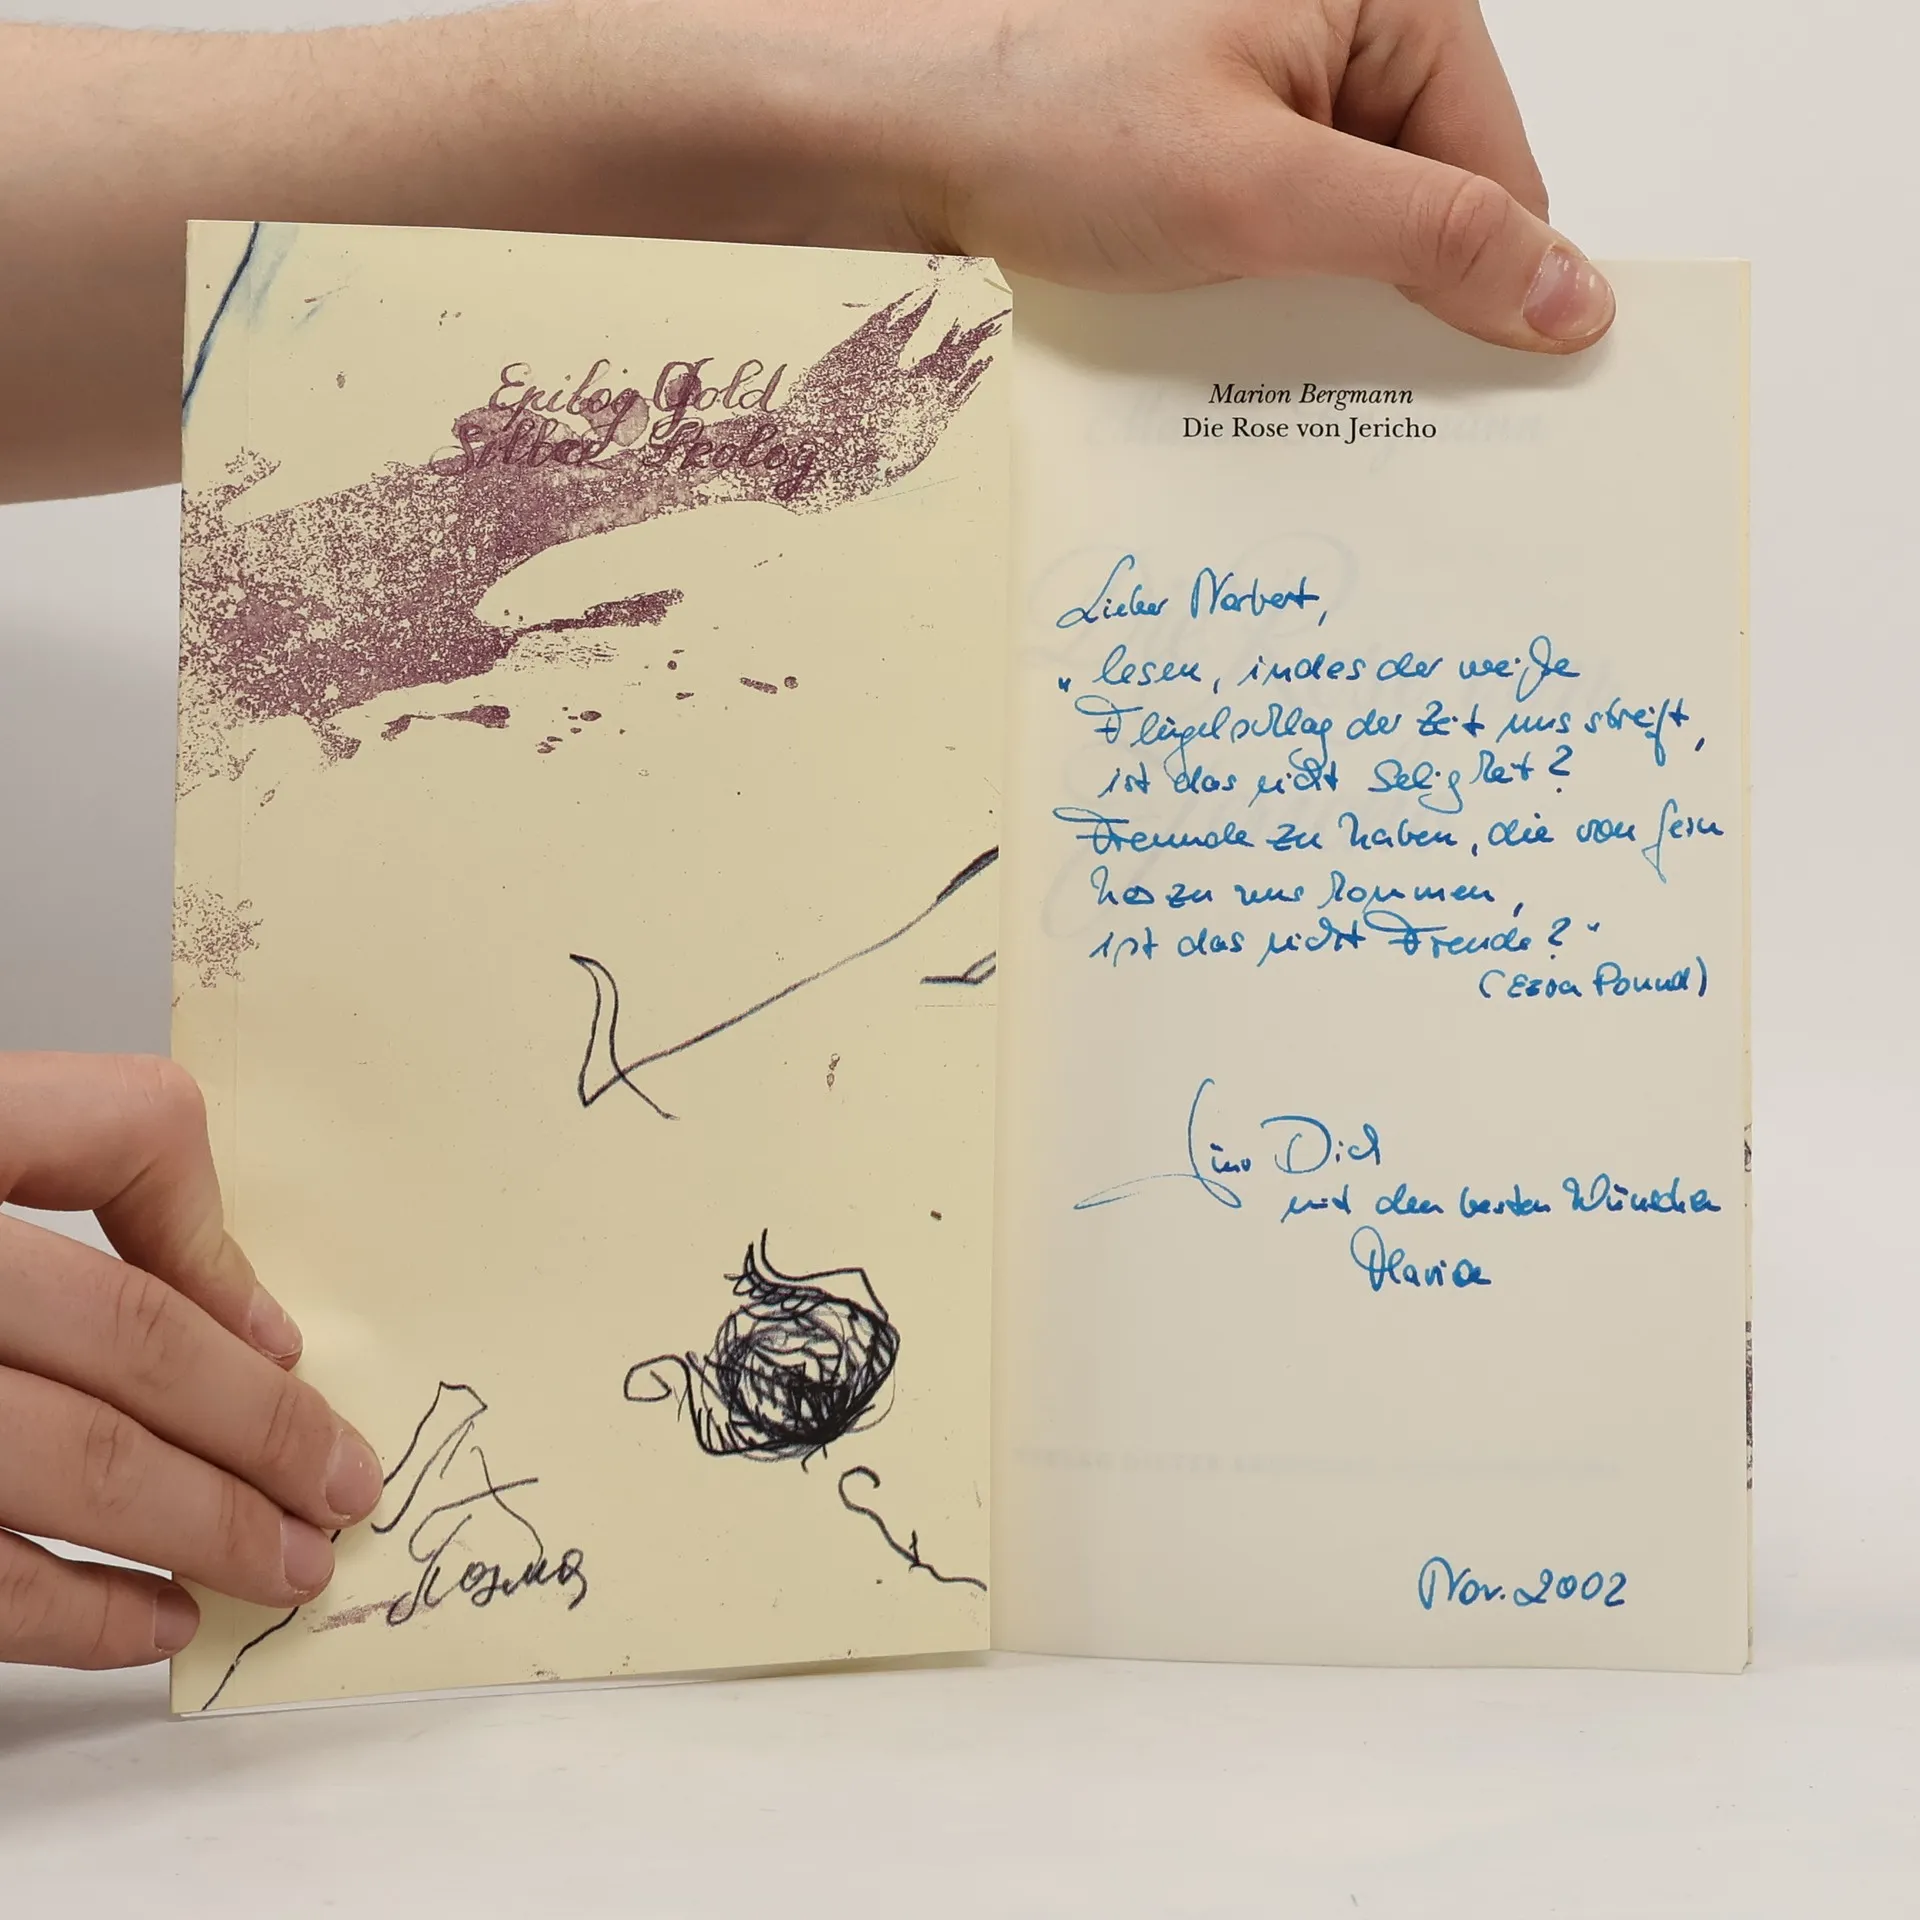 Epilog Gold
Silber Prolog
Marion Bergmann
Die Rose von Jericho
Lieber Norbert,
"lesen, indes der weiße
Flügelschlag der Zeit uns streift,
ist das nicht Seligkeit?
Freunde zu haben, die von fern
her zu uns kommen,
ist das nicht Freude?"
(Ezra Pound)
Für Dich
mit den besten Wünschen
Nov. 2002